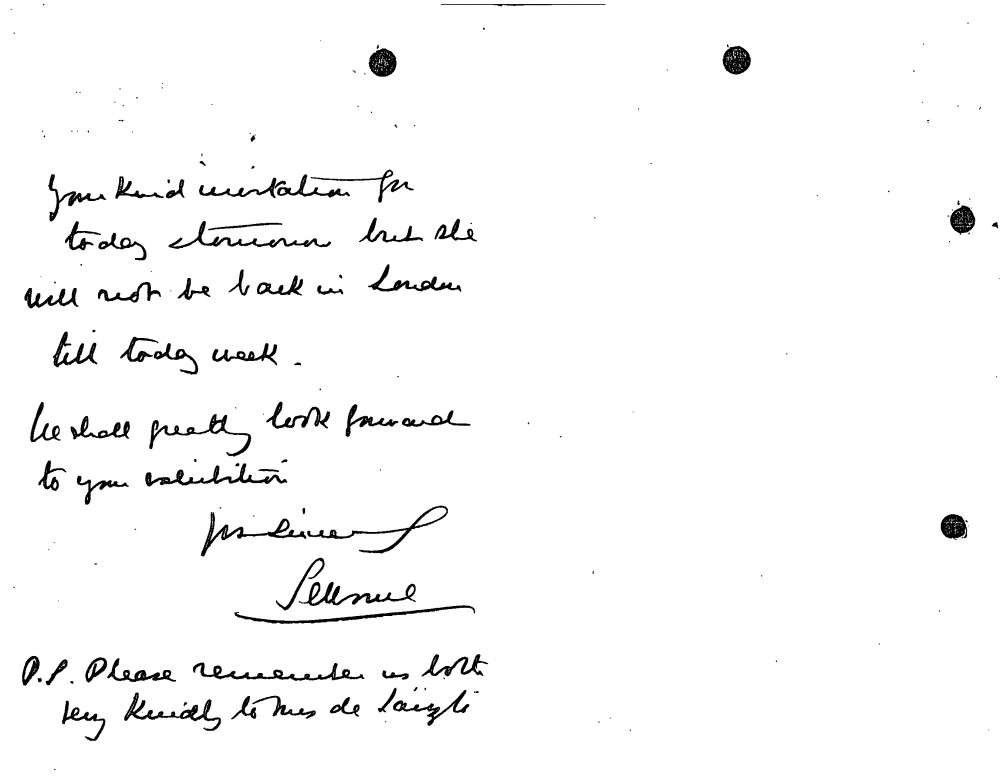 your kind invitation for
today & tomorrow but she
will not be back in London
till today week.
We shall greatly look forward
to your exhibition
Yrs sincerely
Selborne
P.S. Please remember us both
very kindly to Mrs de László